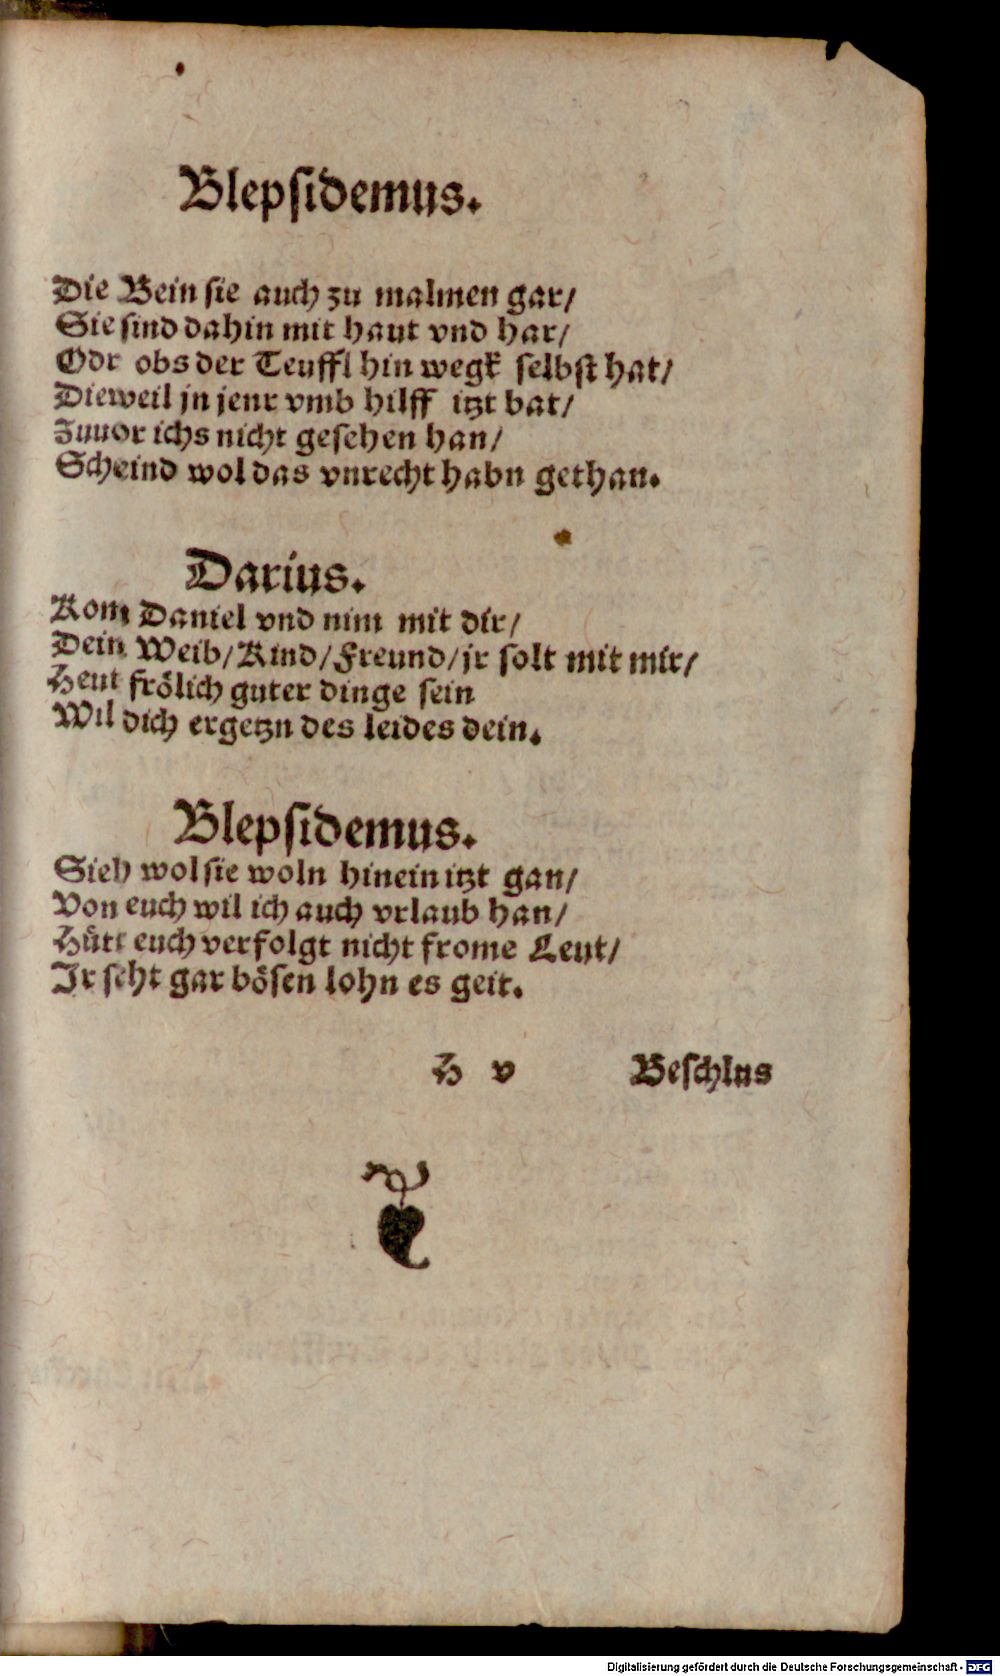 Blepsidemus.
Die Bein sie auch zu malmen gar/
Sie sind dahin mit haut vnd har/
Odr obs der Teuffl hin wegk selbst hat/
Dieweil jn jenr vmb hilff itzt bat/
Zuuor ichs nicht gesehen han/
Scheind wol das vnrecht habn gethan.
Darius.
Kom Daniel vnd nim mit dir/
Dein Weib/Kind/Freund/jr solt mit mir/
Heut frölich guter dinge sein
Wil dich ergetzn des leides dein.
Blepsidemus.
Sieh wol sie woln hinein itzt gan/
Von euch wil ich auch vrlaub han/
Hütt euch verfolgt nicht frome Leut/
Jr seht gar bösen lohn es geit.
H v Beschlus
Digitalisierung gefördert durch die Deutsche Forschungsgemeinschaft - DFG